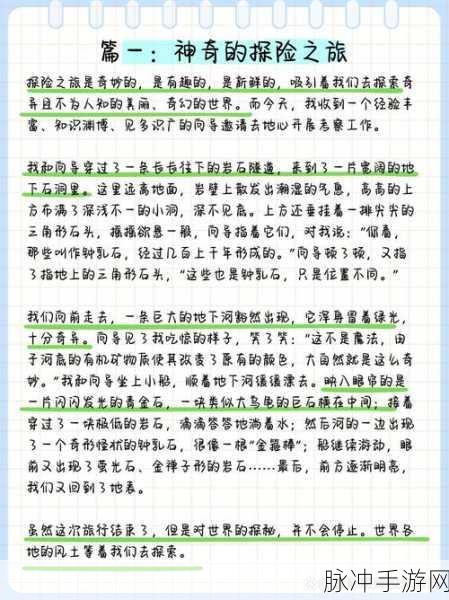 篇一：神奇的探险之旅
探险之旅是奇妙的，是有趣的，是新鲜的，吸引着我们去探索奇
异且不为人知的美丽、奇幻的世界。而今天，我收到一个经验丰
富、知识渊博、见多识广的向导邀请去地心开展考察工作。
我和向导穿过了一条长长往下的岩石隧道，来到了一片宽阔的地
下石洞里。这里远离地面，岩壁上散发出潮湿的气息，高高的上
方布满了深浅不一的小洞，深不见底。上方还垂挂着一排尖尖的
三角形石头，摇摇欲坠一般，向导指着它们，对我说：“你看，
那些叫作钟乳石，经过几百上千年形成的。”向导顿了顿，又指
了指地上的三角形石头，“这些也是钟乳石，只是位置不同。”
我们向前走去，一条巨大的地下河豁然出现，它浑身冒着绿光，
十分奇异。向导见了我吃惊的样子，笑了笑：“这不是魔法，由
于河底的有机矿物质使其改变了原有的颜色，大自然就是这么奇
妙。”我和向导坐上小船，顺着地下河缓缓漂去。映入眼帘的是
一片闪闪发光的青金石，一块类似大乌龟的巨石横在中间；接着
穿过了一块极低的岩石，滴滴答答地淌着水；然后河的一边出现
了一个奇形怪状的钟乳石，很像一根“金箍棒”；船继续游动，眼
前又出现了萤光石、金禅子形的岩石……最后，前方逐渐明亮，
我们又回到了地表。
虽然这次旅行结束了，但是对世界的探秘，并不会停止。世界各
地的风土等着我们去探索。
脉冲手游网